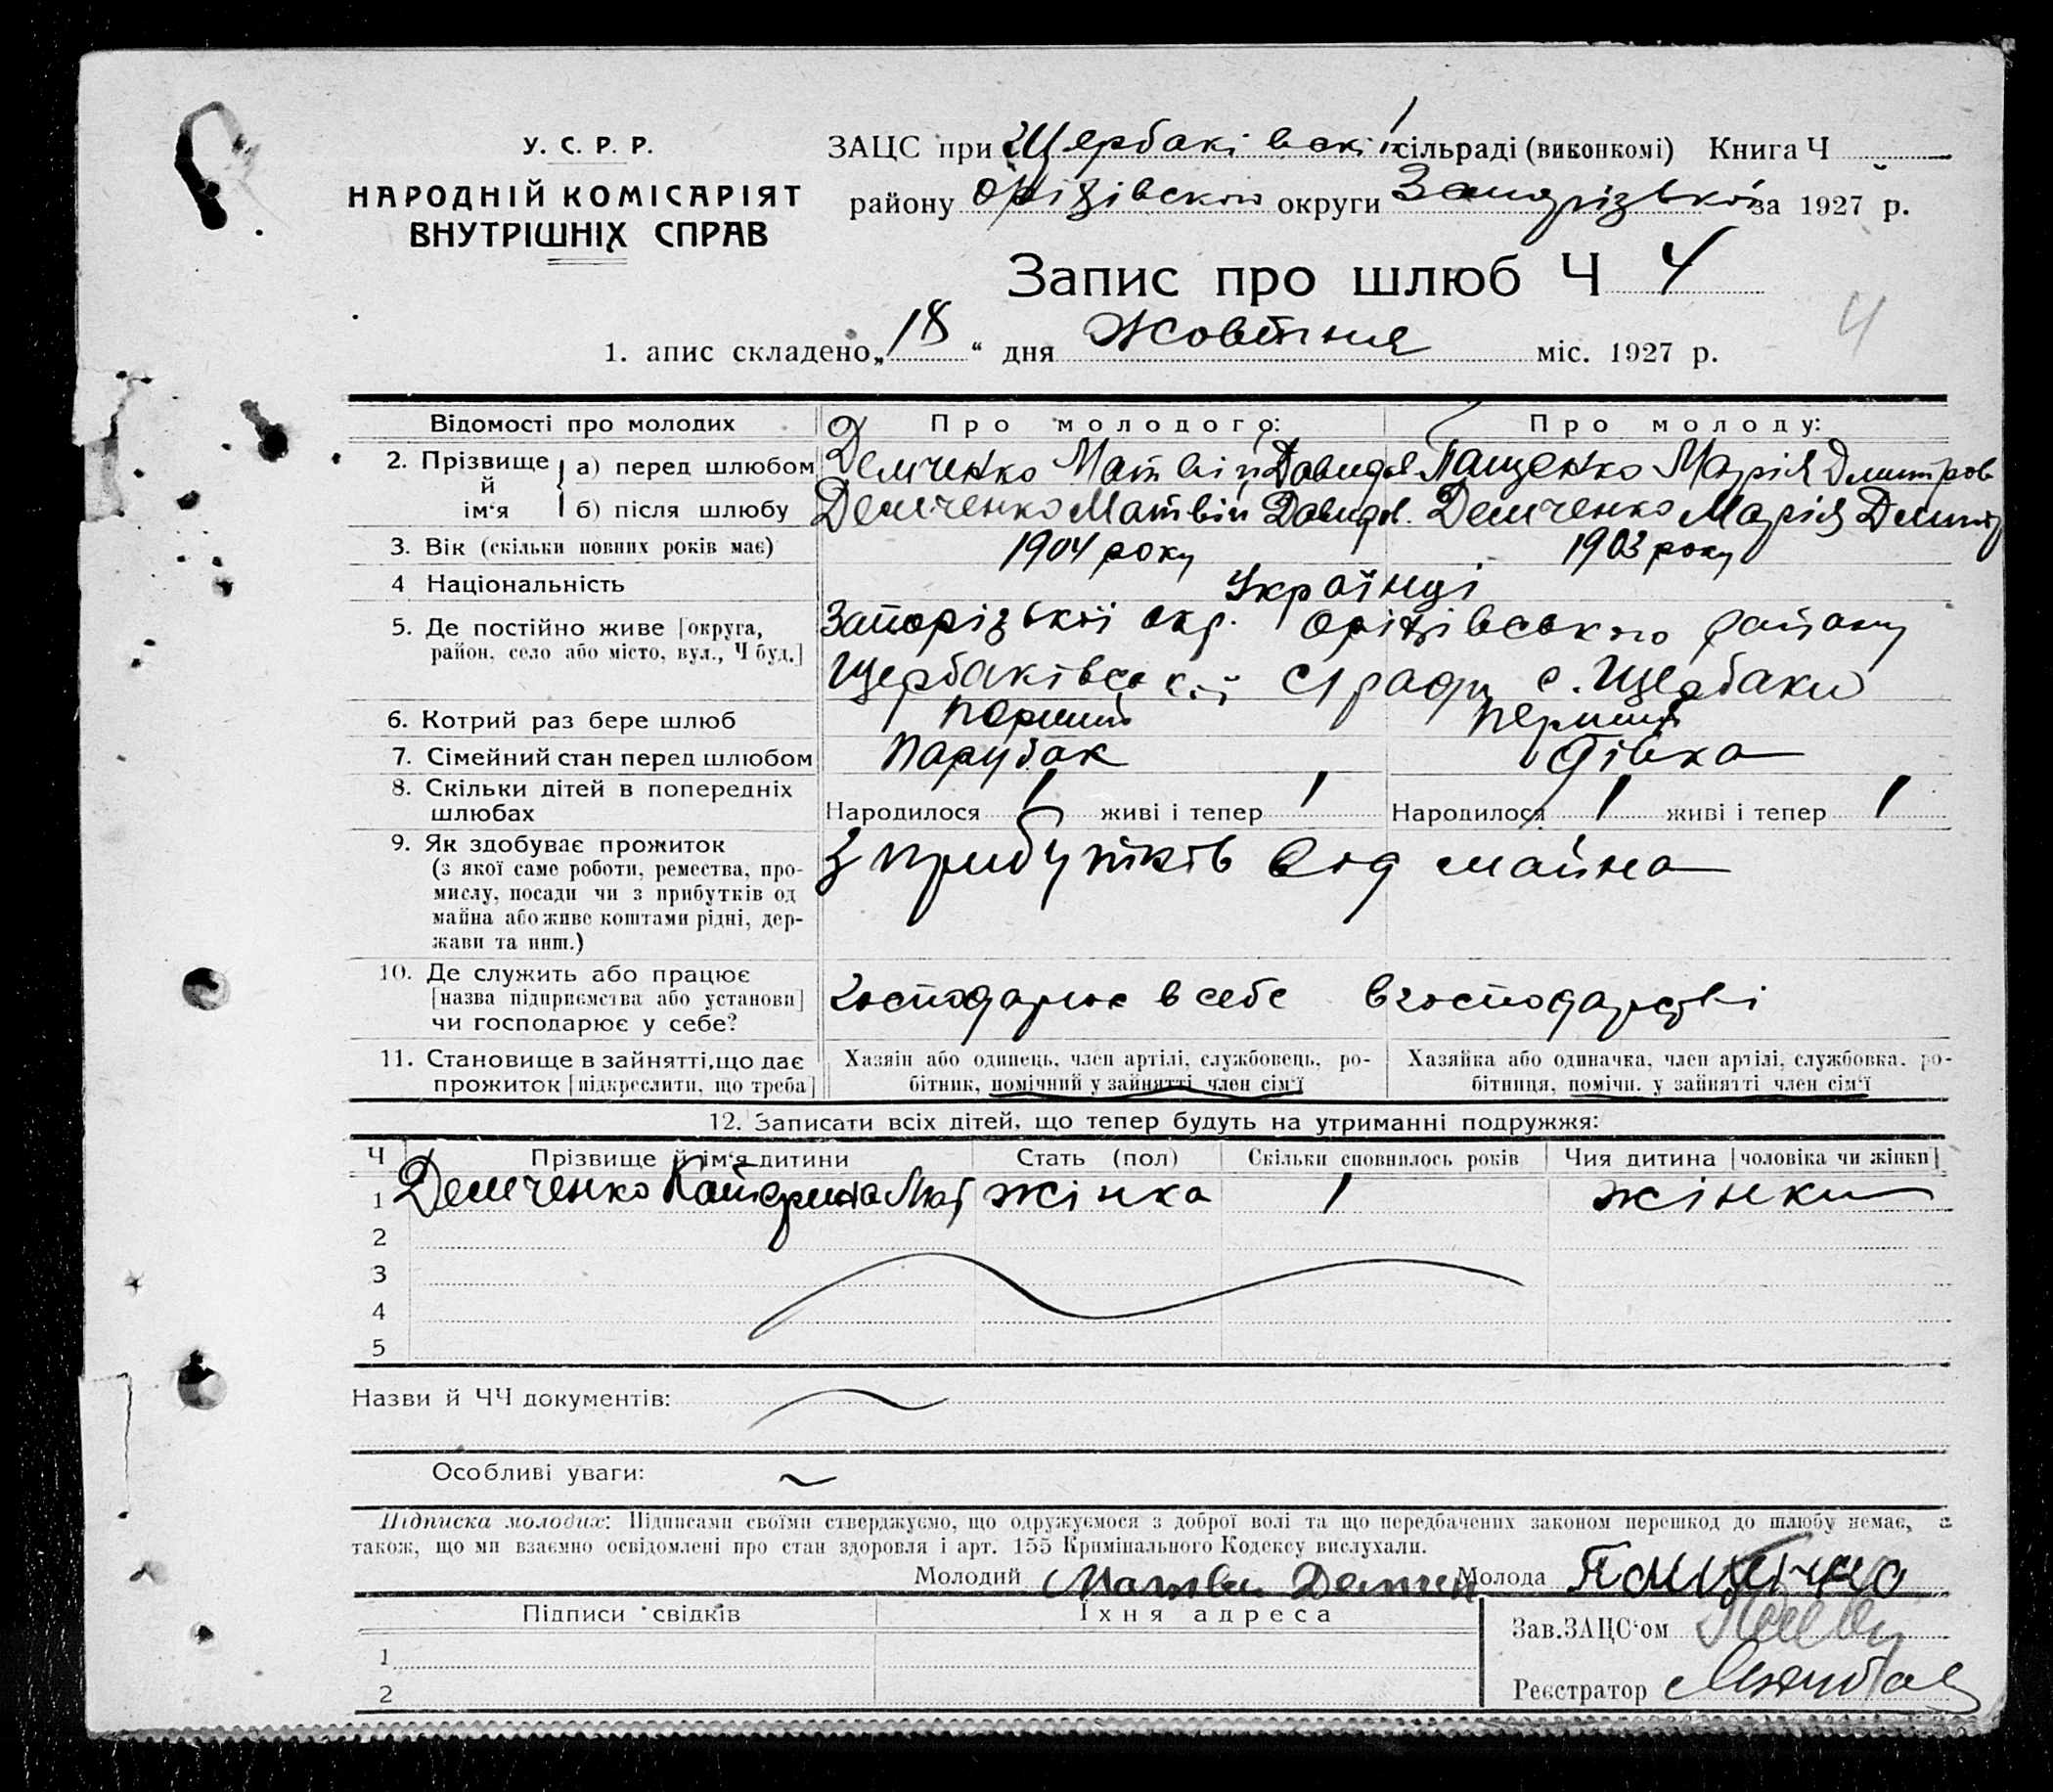 У. С. Р. Р.
НАРОДНІЙ КОМІСАРІЯТ
ВНУТРІШНІХ СПРАВ
ЗАЦС при Щербаківскі сільраді (виконкомі) Книга Ч
району Оріхівского округи Запорізької за 1927 р.
Запис про шлюб Ч 4
4
1. апис складено „18“ дня Жовтня міс. 1927 р.
Відомості про молодих Про молодого: Про молоду:
2. Прізвище й ім‘я
а) перед шлюбом Демченко Матвій Давидов Пащенко Марія Дмитров
б) після шлюбу Демченко Матвій Давидов. Демченко Марія Дмитр
3. Вік (скільки повних років має) 1904 року 1903 року
4 Національність Українці
5. Де постійно живе [округа, Запорізької окр. Оріхівського району
район, село або місто, вул., Ч буд.] Щербаківської с/ради с. Щербаки
6. Котрий раз бере шлюб перший перший
7. Сімейний стан перед шлюбом парубак дівка
8. Скільки дітей в попередніх
шлюбах Народилося 1 живі і тепер 1 Народилося 1 живі і тепер 1
9. Як здобуває прожиток з прибутків від майна
(з якої саме роботи, ремества, про-
мислу, посади чи з прибутків од
майна або живе коштами рідні, дер-
жави та инш.)
10. Де служить або працює
[назва підприємства або установи] господарює в себе в господарстві
чи господарює у себе?
11. Становище в зайнятті, що дає Хазяїн або одинець, член артілі, службовець, ро- Хазяйка або одиначка, член артілі, службовка. ро-
прожиток [підкреслити, що треба] бітник, помічний у зайнятті член сім‘ї бітниця, помічн. у зайнятті член сім‘ї
12. Записати всіх дітей, що тепер будуть на утриманні подружжя:
Ч Прізвище й ім‘я дитини Стать (пол) Скільки сповнилось років Чия дитина [чоловіка чи жінки]
1 Демченко Катерина Мат жінка 1 жінки
2
3
4
5
Назви й ЧЧ документів:
Особливі уваги:
Підписка молодих: Підписами своїми стверджуємо, що одружуємося з доброї волі та що передбачених законом перешкод до шлюбу немає, а
також, що ми взаємно освідомлені про стан здоровля і арт. 155 Кримінального Кодексу вислухали.
Молодий Матвій Демчен Молода Пащенко
Підписи свідків Їхня адреса
Зав. ЗАЦС‘ом
1
Реєстратор
2